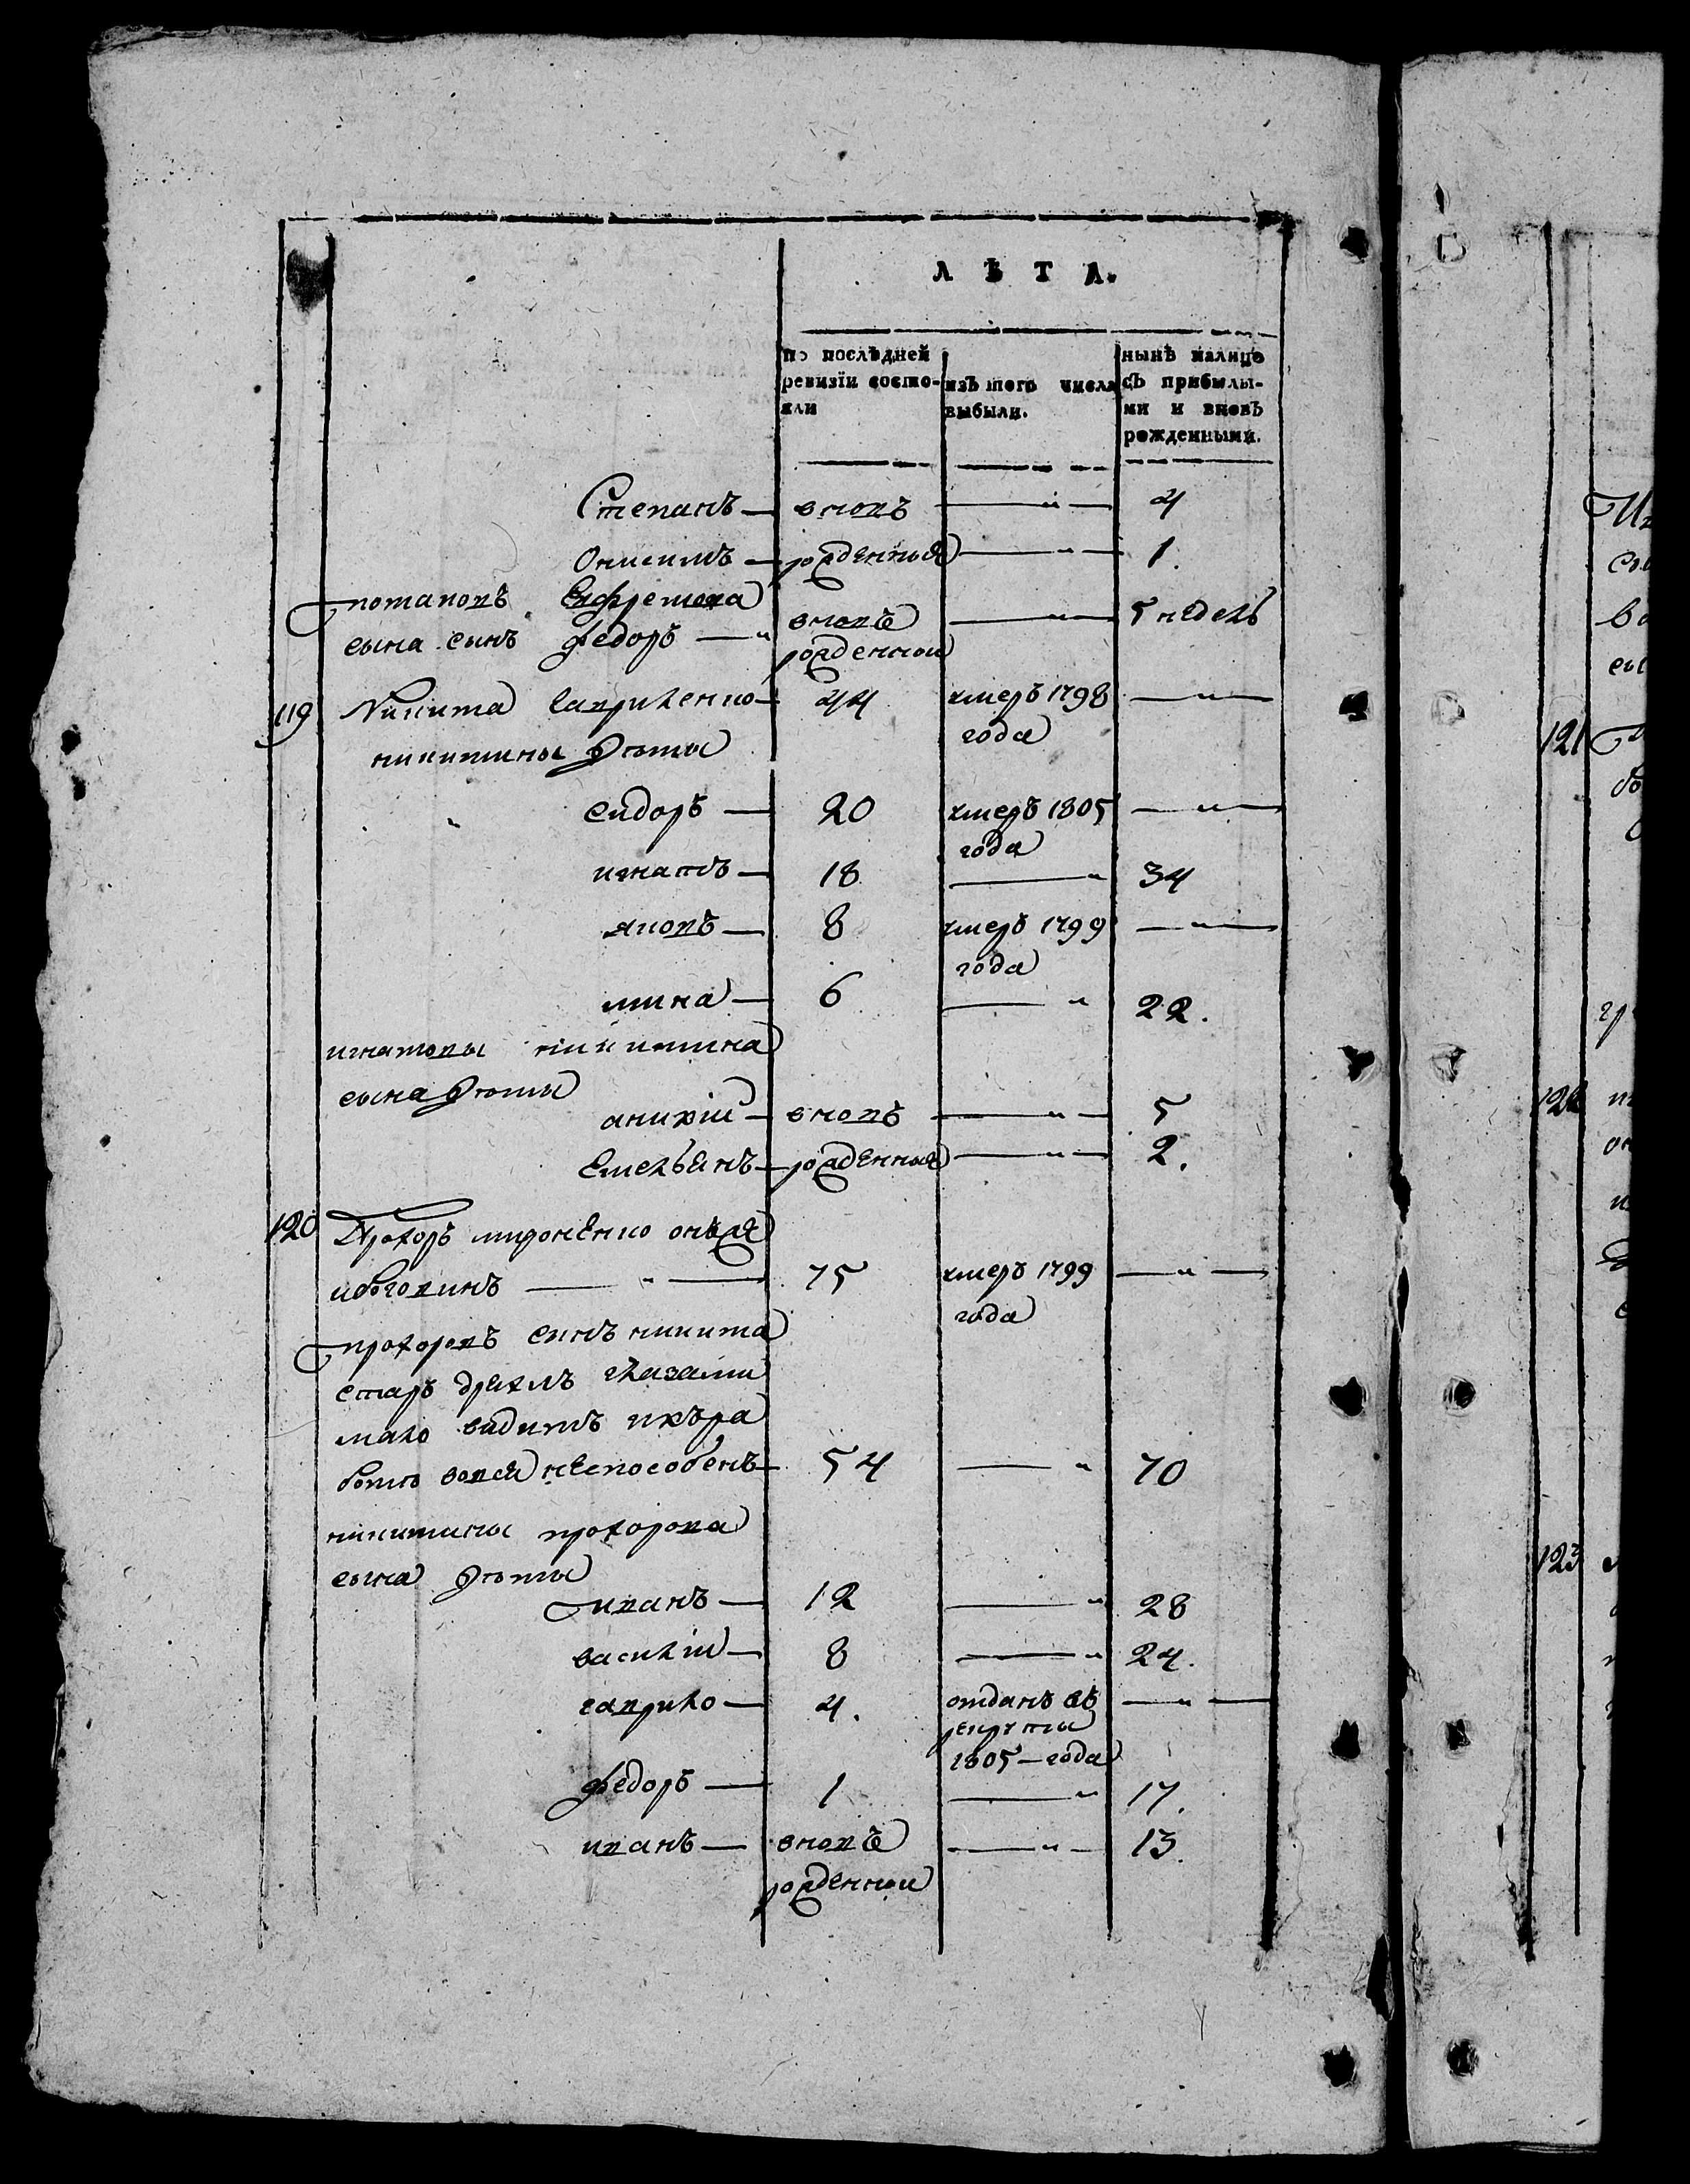 ЛѢТА.
по послѣдней ревизіи состояли
изъ того числа выбыли.
нынѣ налицо съ прибылыми и вновь рожденными.
Степанъ — вновъ — 4
Онисимъ — рожденныя — 1.
потаповъ Ефремова
сына сынъ федоръ — вновъ рожденной — 5 недель
119 Никита Гавриленко — 44 умеръ 1798 года —
никитины дѣти
сидоръ — 20 умеръ 1805 года —
игнатъ — 18 — 34
яковъ — 8 умеръ 1799 года —
мина — 6 — 22.
игнатовы никитина
сына дѣти
аникій — вновъ — 5
Емельянъ — рожденныя — 2.
120 Прохоръ мироненко
75 умеръ 1799 года —
прохоровъ сынъ никита
старъ дряхлъ глазами
мало видитъ и къ ра
боте вовся неспособенъ — 54 — 70
никитины прохорова
сына дѣти
иванъ — 12 — 28
василій — 8 — 24.
гаврило — 4. отданъ въ рекруты 1805 — года —
федоръ — 1 — 17.
иванъ — вновъ рожденной — 13.
121
122
123